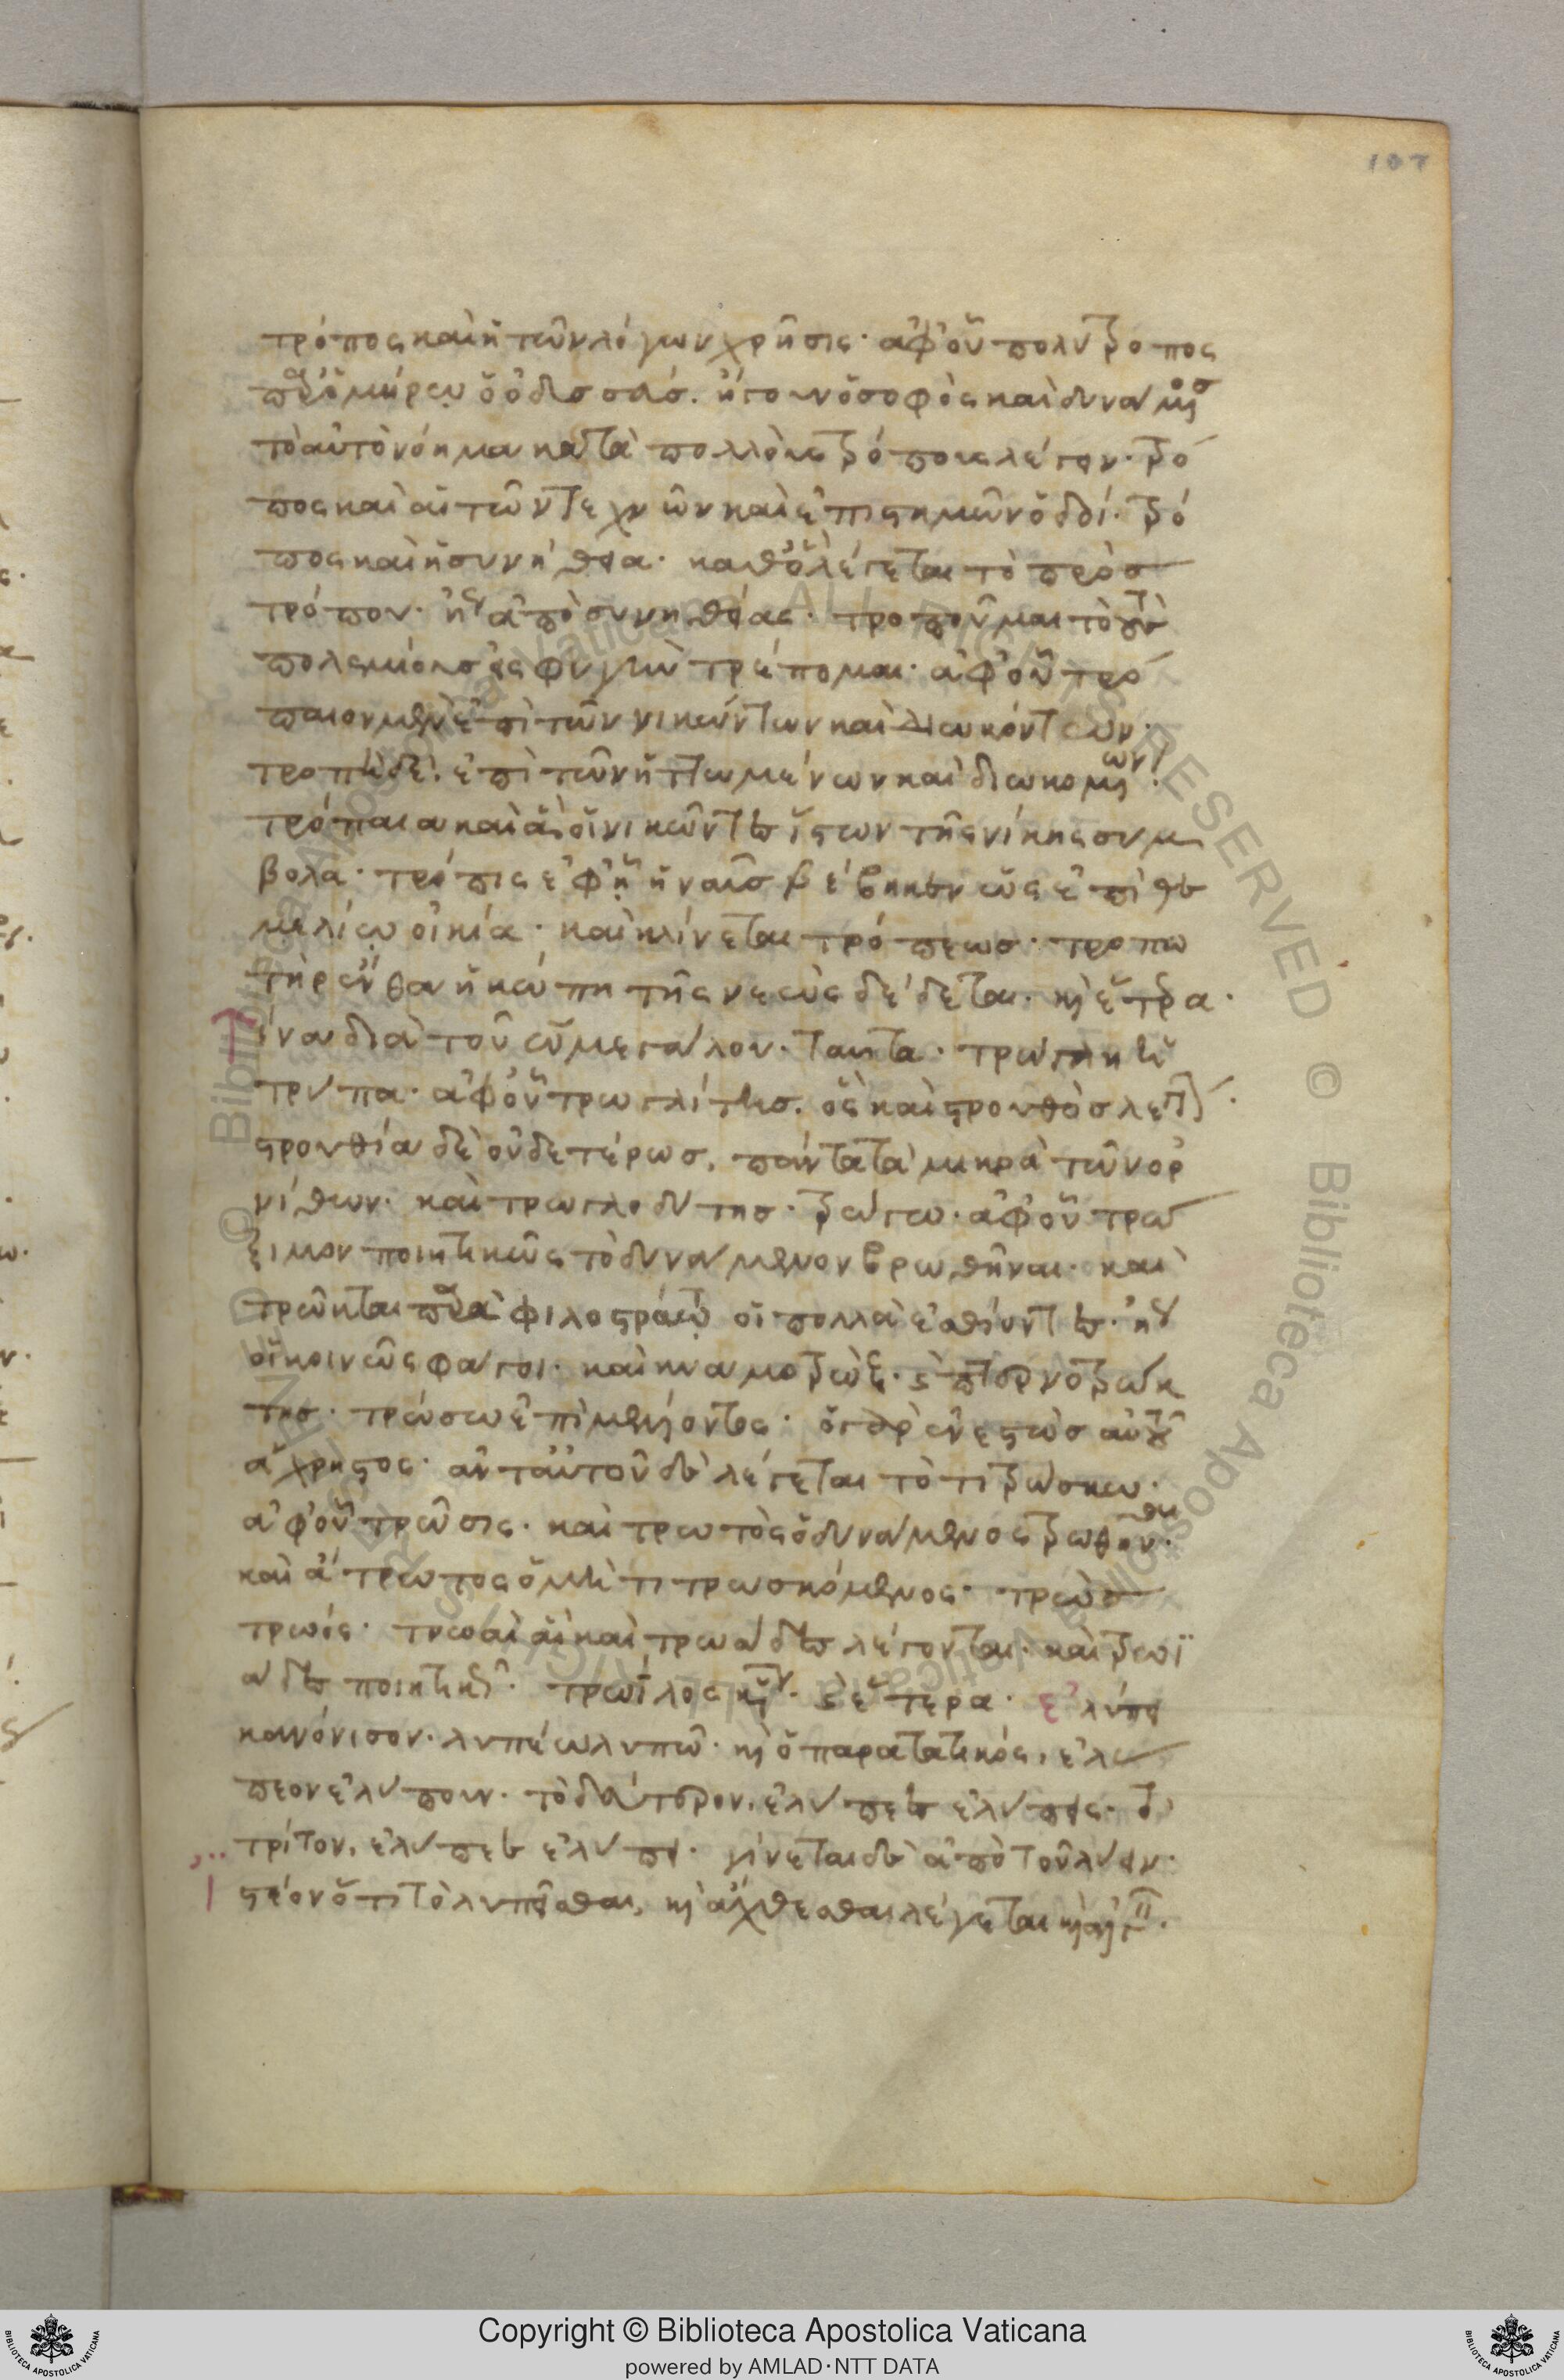 107
τρόπος καὶ ἡ τῶν λόγων χρῆσις· ἀφ' οὗ πολύτροπος
παρ' ὁμήρῳ ὁ ὀδυσσεύς. ἤγουν ὁ σοφὸς καὶ δυνάμενος
τὸ αὐτὸ νόημα κατὰ πολλοὺς τρόπους λέγειν· τρό
πος καὶ αἱ τῶν τεχνῶν καὶ ἐπιστημῶν ὁδοί· τρό
πος καὶ ἡ συνήθεια· καθ' ὃ λέγεται τὸ πρὸσ
τρόπον· ἤγουν ἀπὸ συνηθείας· τροποῦμαι τὸ τοὺς
πολεμίους εἰς φυγὴν τρέπομαι· ἀφ' οὗ τρό
παιον μὲν ἐπὶ τῶν νικώντων καὶ διωκόντων·
τροπὴ δὲ, ἐπὶ τῶν ἡττωμένων καὶ διωκομένων·
τρόπαια καὶ ἃ οἱ νικῶντες ἵστων τῆς νίκης συμ
βολα· τρόπις ἐφ' ᾗ ἡ ναῦσ βέβηκεν ὡς ἐπὶ θε
μελίῳ οἰκία· καὶ κλίνεται τρόπεωσ· τροπω
τὴρ ἔνθα ἡ κώπη τῆς νεὼς δέδεται. καὶ ἕτερα·
ἵνα διὰ τοῦ ω μεγάλου· ταῦτα· τρώγλη ἡ
τρύπα· ἀφ' οὗ τρωγλίτησ. ὃς καὶ στρουθὸσ λέγεται·
στρουθία δὲ οὐδετέρωσ, πάντα τὰ μικρὰ τῶν ὀρ
νίθων· καὶ τρωγλοδύτησ· τρώγω· ἀφ' οὗ τρώ
ξιμον ποιητικῶς τὸ δυνάμενον βρωθῆναι· καὶ
τρῶκται παρὰ φιλοστράτῳ οἱ πολλὰ ἐσθίοντες· ἤγουν
οἱ κοινῶς φάγοι· καὶ κυαμοτρὼξ·
τησ· τρώσω ἐπὶ μέλλοντος· ὁ γὰρ ἐνεστὼσ αὐτοῦ
ἄχρηστος· ἀντ' αὐτοῦ δὲ λέγεται τὸ τιτρώσκω·
ἀφ' οὗ τρῶσις· καὶ τρωτὸς ὁ δυνάμενος τρωθῆναι·
καὶ ἄτρωτος ὁ μὴ τιτρωσκόμενος· τρὼσ
τρωός· τρωαὶ αἳ καὶ τρωάδες λέγονται· καὶ τρωϊ
άδες ποιητικῶς· τρωΐλος κύριον· καὶ ἕτερα· ἐλύπει
κανόνισον· λυπέω λυπῶ· καὶ ὁ παρατατικός, ἐλύ
πεον ἐλύπουν· τὸ δεύτερον, ἐλύπεες ἐλύπεις· τὸ
τρίτον, ἐλύπεε ἐλύπει· γίνεται δὲ ἀπὸ τοῦ λύειν·
στέον ὅτι τὸ λυπεῖσθαι, καὶ ἄχθεσθαι λέγεται καὶ
Copyright © Biblioteca Apostolica Vaticana
powered by AMLAD·NTT DATA